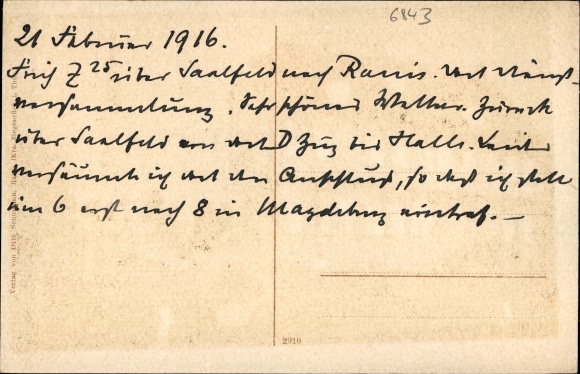 6843
21 Februar 1916.
Früh 7 25 über Saalfeld nach Ranis. Dort
versammlung. Sehr schönes Wetter. Zurück
über Saalfeld von dort D Zug bis Halle. Leider
versäumte ich dort den Anschluß, so daß ich statt
um 6 erst nach 8 in Magdeburg eintraf. —
Verlag von Otto
2910